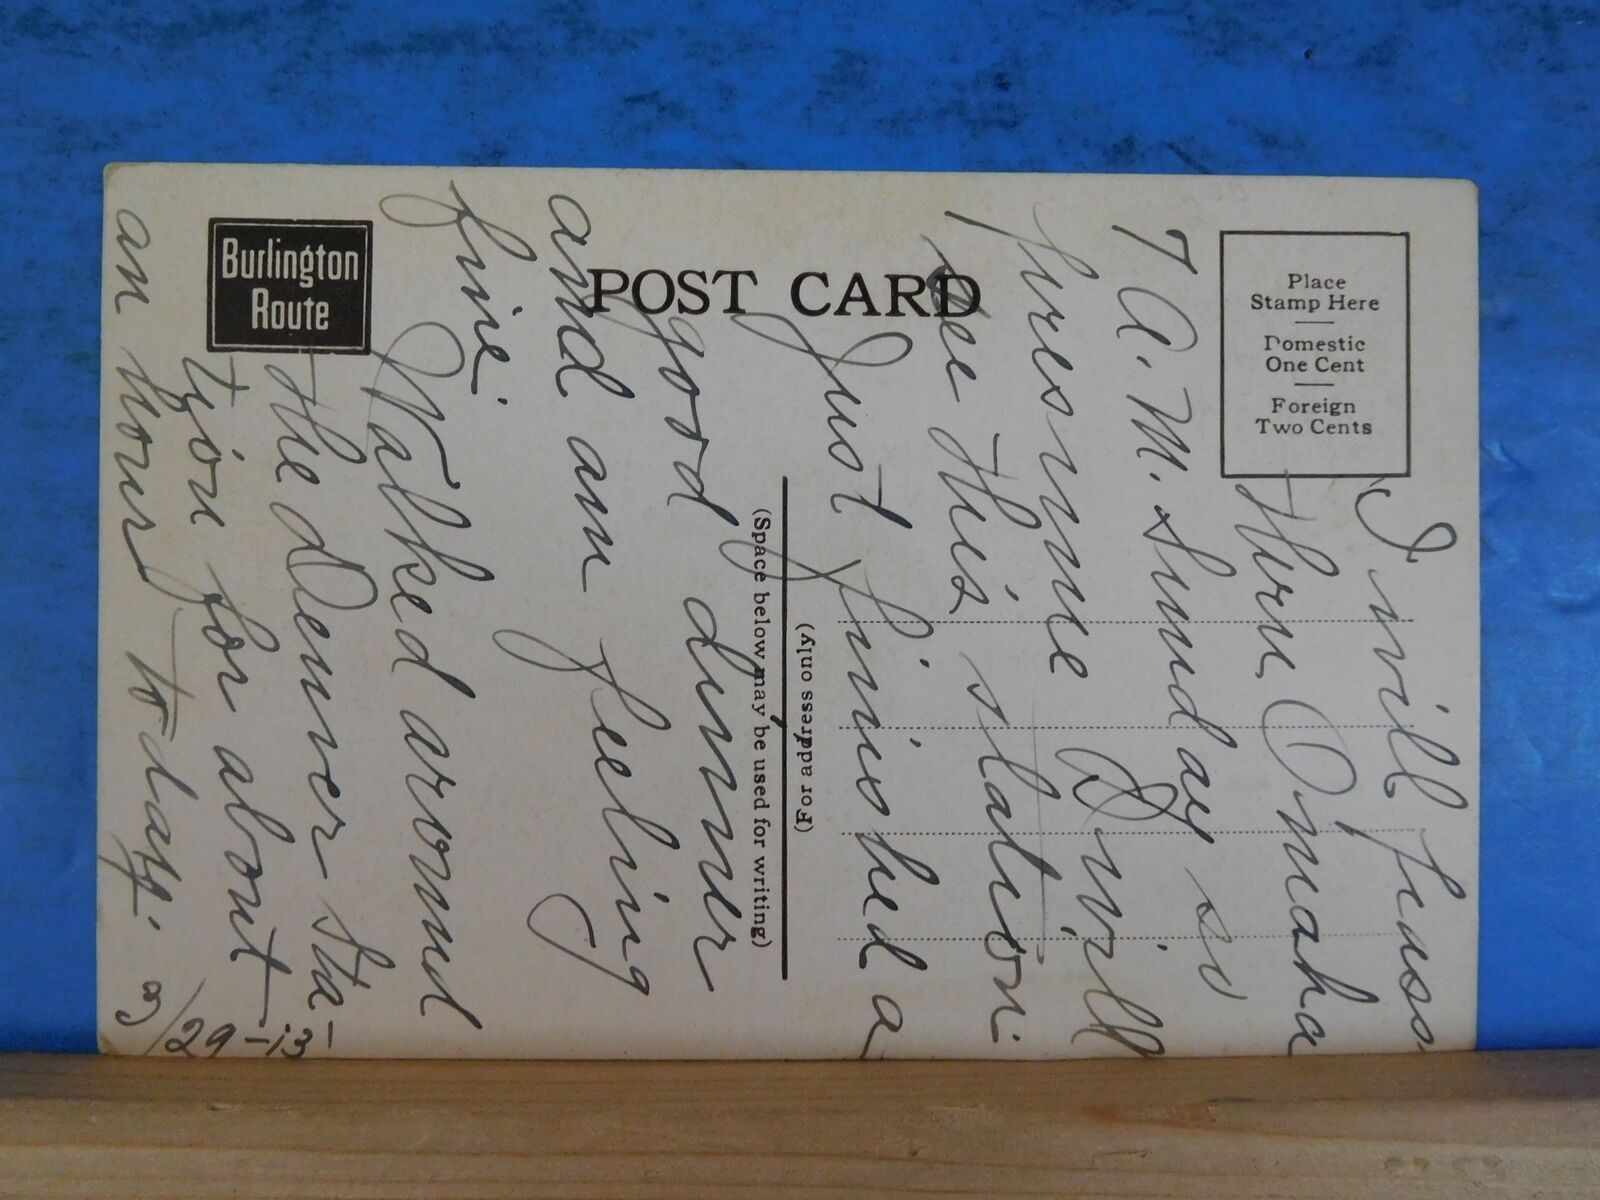 Burlington
Route
POST CARD
Place
Stamp Here
Domestic
One Cent
Foreign
Two Cents
(For address only)
(Space below may be used for writing)
I will pass
thru Omaha
7 A.M. Sunday so
presume I will
see this station.
Just finished a
good dinner
and am feeling
fine.
Walked around
the Denver Sta-
tion for about
an hour to-day.
8/29-13